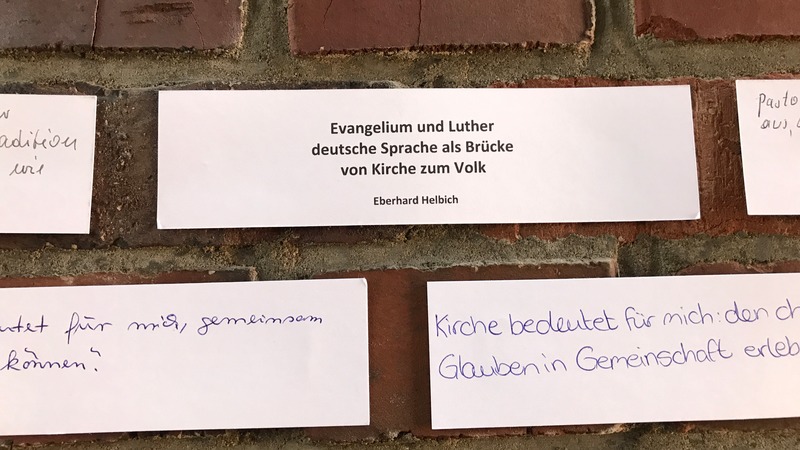 adition
wie
Evangelium und Luther
deutsche Sprache als Brücke
von Kirche zum Volk
Eberhard Helbich
Pasto
aus,
utet für mich, gemeinsam
können?
Kirche bedeutet für mich: den ch
Glauben in Gemeinschaft erleb